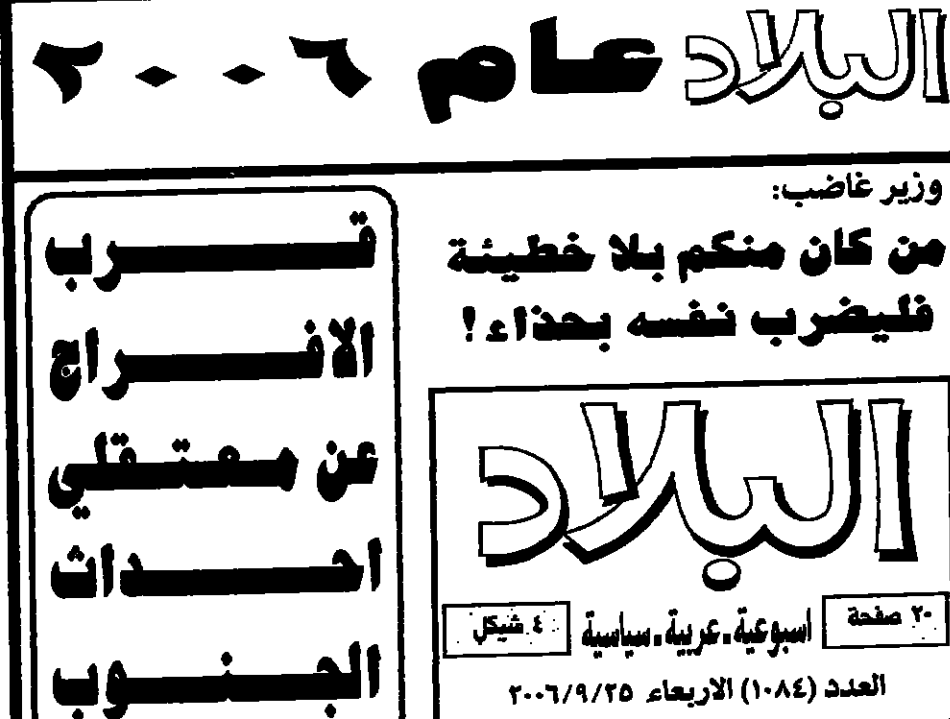 البلاد عام ٢٠٠٦
وزير غاضب:
من كان منكم بلا خطيئة
فليضرب نفسه بحذاء!
البلاد
٢٠ صفحة
اسبوعية - عربية - سياسية
٤ شيكل
العدد (١٠٨٤) الاربعاء ٢٠٠٦/٩/٢٥
قرب
الافراج
عن معتقلي
احداث
الجنوب